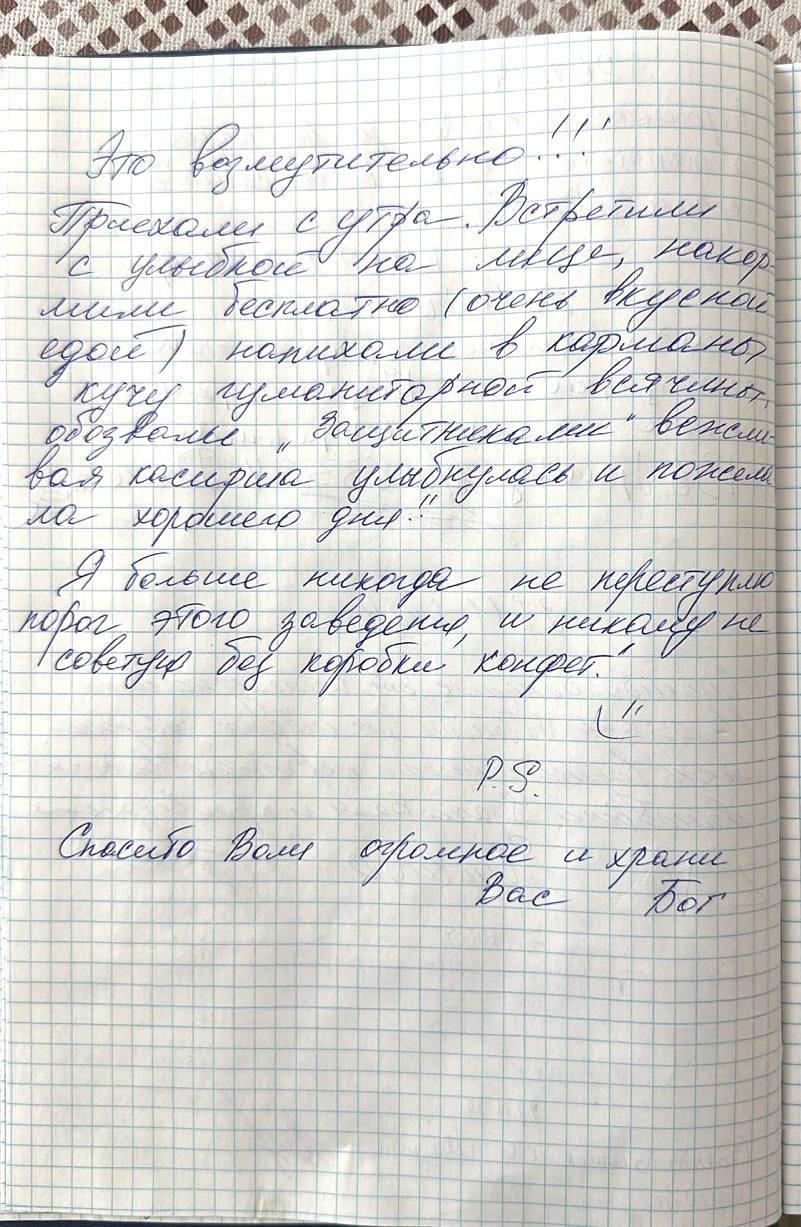 Это возмутительно!!!
Приехали с утра. Встретили
с улыбкой на лице, накор-
мили бесплатно (очень вкусной
едой) напихали в карманы
кучу гуманитарной всячины,
обозвали „Защитниками" вежли-
вая касирша улыбнулась и пожела
ла хорошего дня!!
Я больше никогда не переступлю
порог этого заведения, и никому не
советую без коробки конфет."
P.S.
Спасибо Вам огромное и храни
Вас Бог